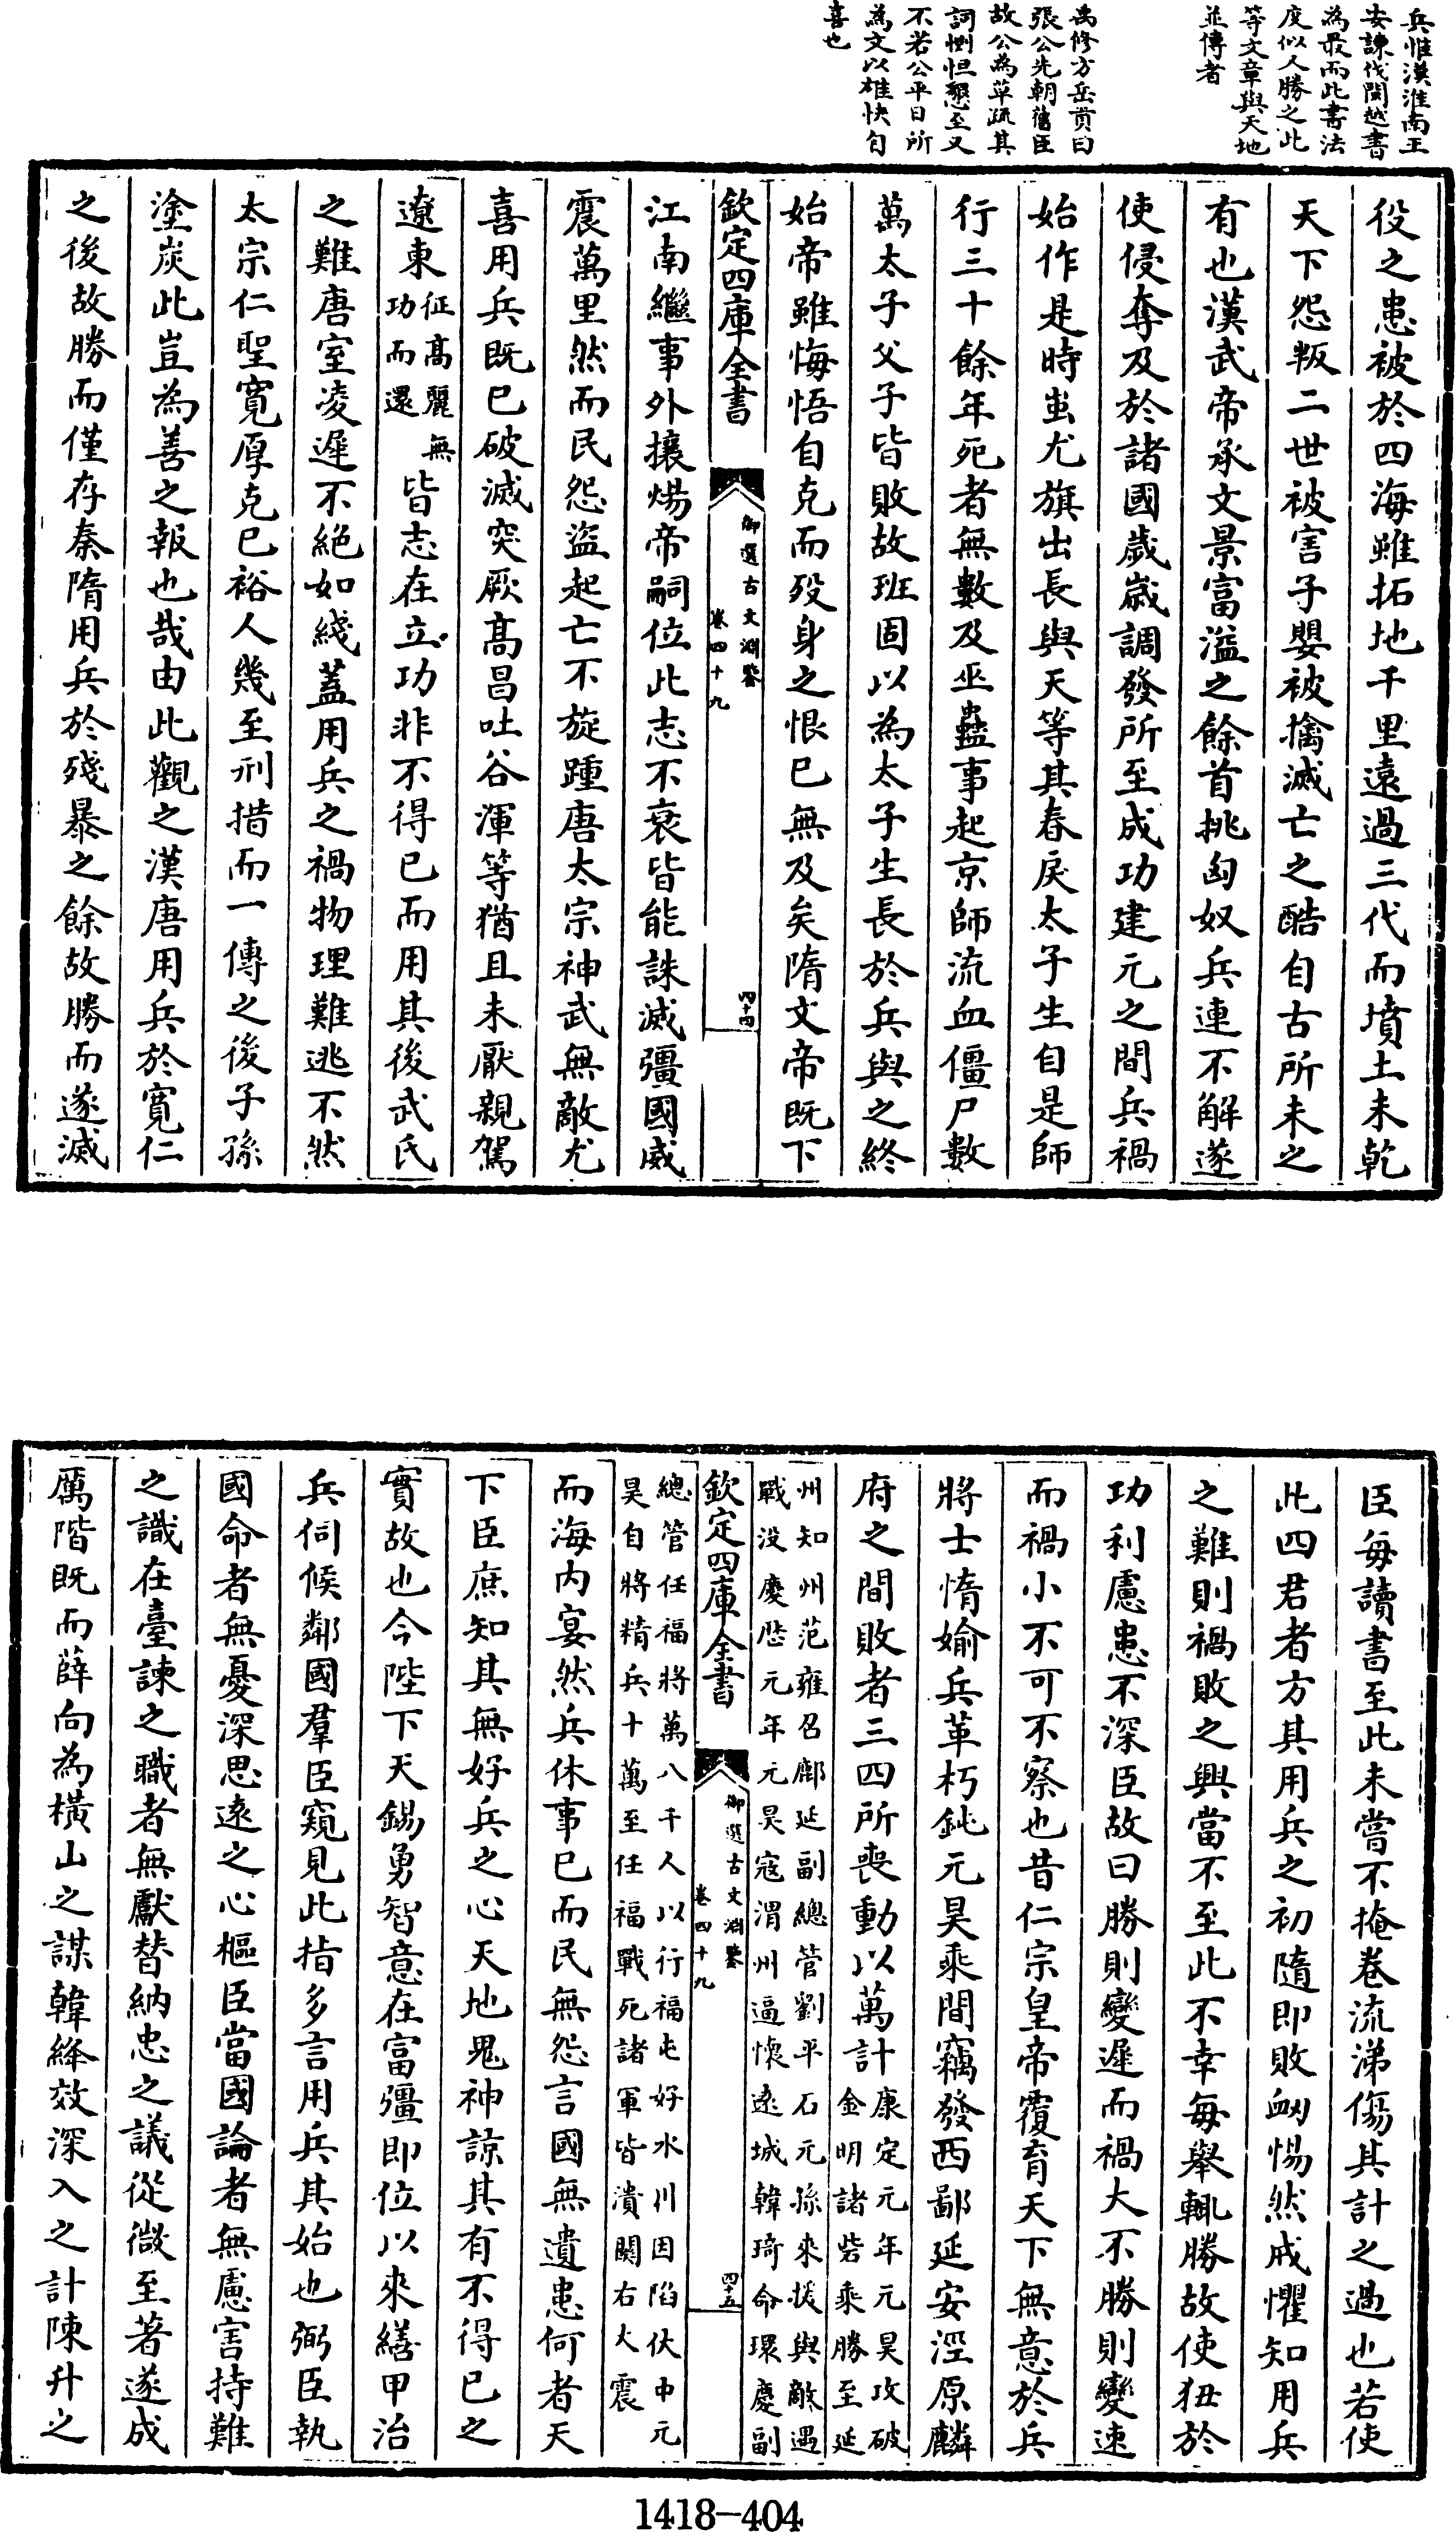 兵惟漢淮南王
安諫伐閩越書
為最而此書法
度似人勝之此
等文章與天地
並傳者
禹修方岳貢曰
張公先朝舊臣
故公為草疏其
詞惻怛懇至又
不若公平日所
為文以雄快自
喜也
役之患被於四海雖拓地千里遠過三代而墳土未乾
天下怨叛二世被害子嬰被擒滅亡之酷自古所未之
有也漢武帝承文景富溢之餘首挑匈奴兵連不解遂
使侵奪及於諸國歲歲調發所至成功建元之間兵禍
始作是時蚩尤旗出長與天等其春戾太子生自是師
行三十餘年死者無數及巫蠱事起京師流血僵尸數
萬太子父子皆敗故班固以為太子生長於兵與之終
始帝雖悔悟自克而歿身之恨已無及矣隋文帝既下
欽定四庫全書
御選古文淵鑒
卷四十九
四十四
江南繼事外攘煬帝嗣位此志不衰皆能誅滅彊國威
震萬里然而民怨盜起亡不旋踵唐太宗神武無敵尤
喜用兵既已破滅突厥高昌吐谷渾等猶且未厭親駕
遼東征高麗無功而還皆志在立功非不得已而用其後武氏
之難唐室凌遲不絕如綫蓋用兵之禍物理難逃不然
太宗仁聖寬厚克已裕人幾至刑措而一傳之後子孫
塗炭此豈為善之報也哉由此觀之漢唐用兵於寬仁
之後故勝而僅存秦隋用兵於殘暴之餘故勝而遂滅
臣每讀書至此未嘗不掩卷流涕傷其計之過也若使
此四君者方其用兵之初隨即敗衂惕然戒懼知用兵
之難則禍敗之興當不至此不幸每舉輒勝故使狃於
功利慮患不深臣故曰勝則變遲而禍大不勝則變速
而禍小不可不察也昔仁宗皇帝覆育天下無意於兵
將士惰媮兵革朽鈍元昊乘間竊發西鄙延安涇原麟
府之間敗者三四所喪動以萬計康定元年元昊攻破金明諸砦乘勝至延
州知州范雍召鄜延副總管劉平石元孫來援與敵遇
戰没慶厯元年元昊寇渭州逼懷遠城韓琦命環慶副
欽定四庫全書
御選古文淵鑒
卷四十九
四十五
總管任福將萬八千人以行福屯好水川因陷伏中元
昊自將精兵十萬至任福戰死諸軍皆潰關右大震
而海内宴然兵休事已而民無怨言國無遺患何者天
下臣庶知其無好兵之心天地鬼神諒其有不得已之
實故也今陛下天錫勇智意在富彊即位以來繕甲治
兵伺候鄰國羣臣窺見此指多言用兵其始也弼臣執
國命者無憂深思遠之心樞臣當國論者無慮害持難
之識在臺諫之職者無獻替納忠之議從微至著遂成
厲階既而薛向為橫山之謀韓絳效深入之計陳升之
1418-404